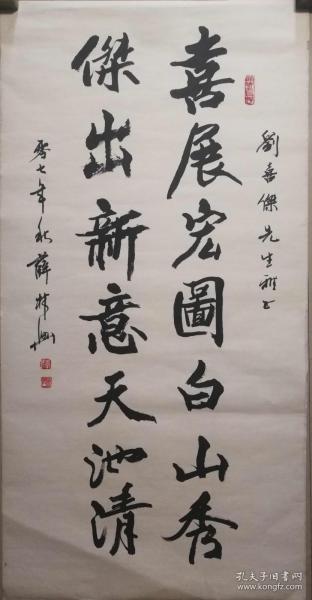 劉喜傑先生雅正
喜展宏圖白山秀
傑出新意天池清
零七年秋薛林興
孔夫子旧书网